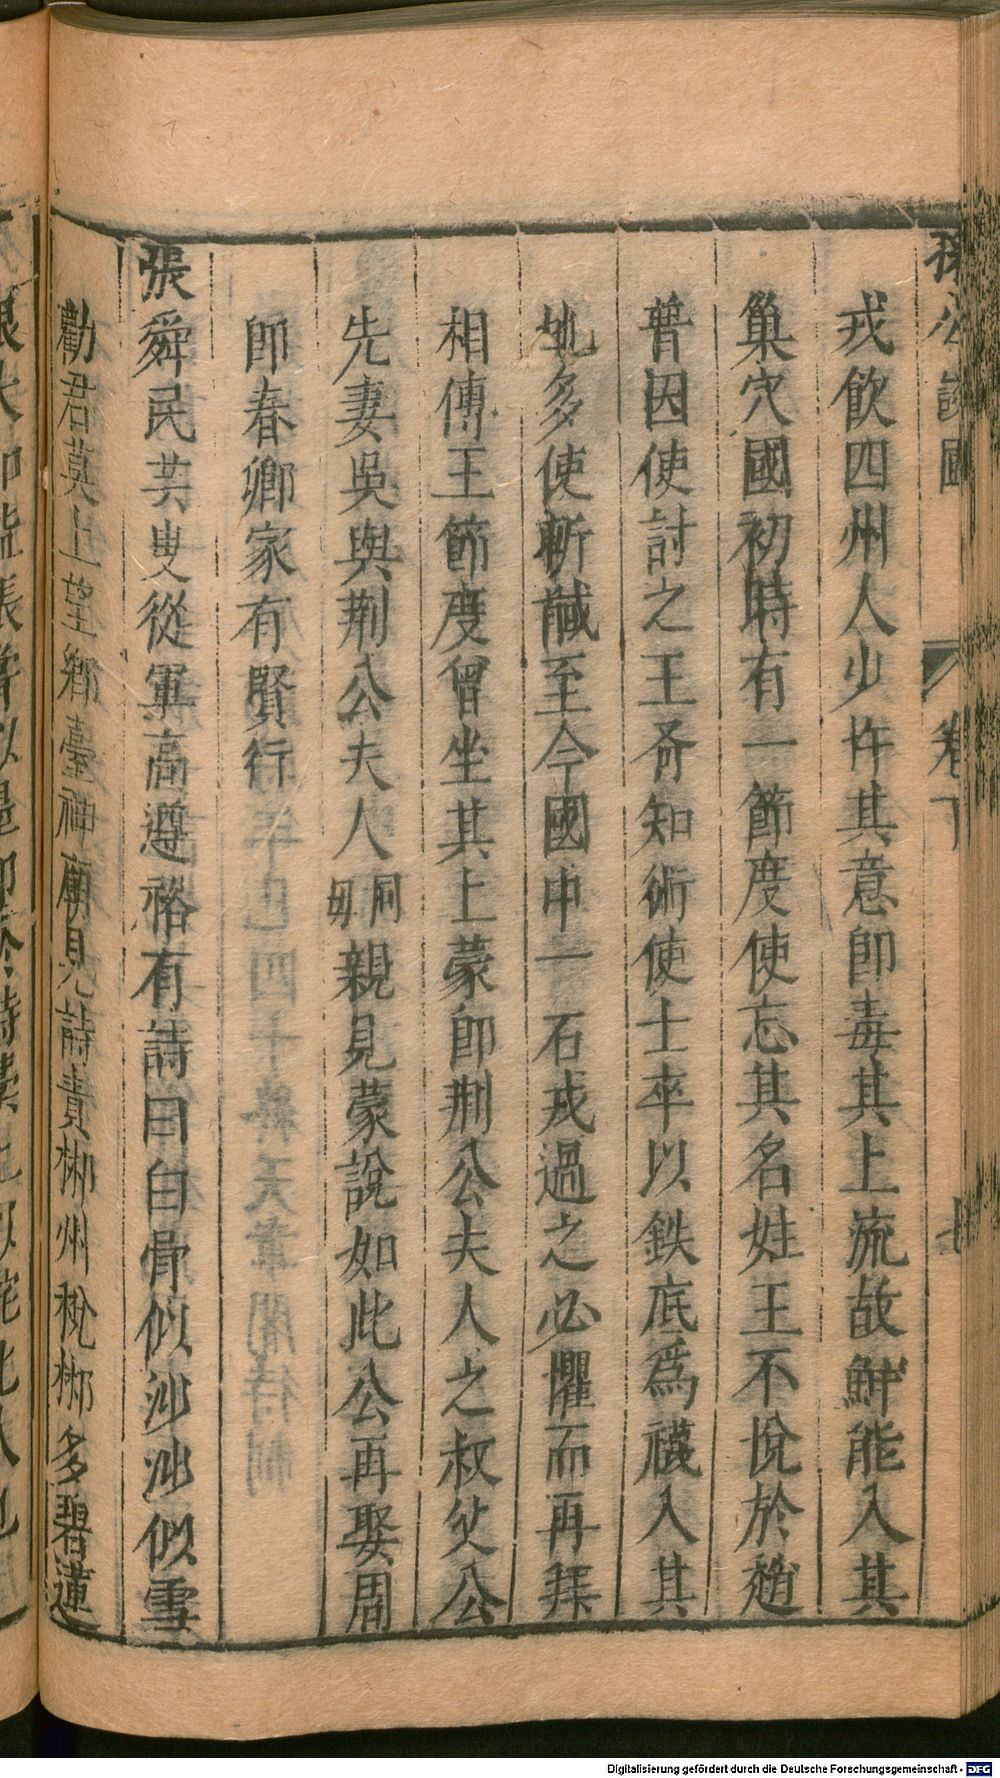 孫公談圃
卷下
戎飲四州人少忤其意卽毒其上流故鮮能入其
巢穴國初時有一節度使忘其名姓王不悅於趙
普因使討之王斉知術使士卒以鉄底爲襪入其
地多使斬馘至今國中一石戎過之必懼而再拜
相傳王節度曾坐其上蒙卽荆公夫人之叔父公
先妻吳與荆公夫人同毋親見蒙說如此公再娶周
卽春卿家有賢行
張舜民芸叟從軍高遵裕有詩曰白骨似沙沙似雪
勸君莫上望鄉臺神廟見詩責郴州稅郴多碧蓮
Digitalisierung gefördert durch die Deutsche Forschungsgemeinschaft - DFG